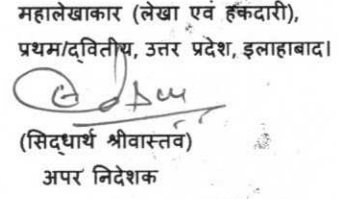 महालेखाकार (लेखा एवं हकदारी),
प्रथम/द्वितीय, उत्तर प्रदेश, इलाहाबाद।
(सिद्धार्थ श्रीवास्तव)
अपर निदेशक